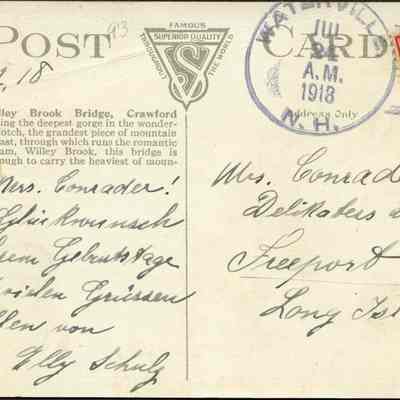 POST CARD
93
FAMOUS
SUPERIOR QUALITY
THROUGHOUT THE WORLD
VS
WATERVILLE
JUL
A. M.
1913
N. H.
18
lley Brook Bridge, Crawford
ing the deepest gorge in the wonder-
otch, the grandest piece of mountain
ast, through which runs the romantic
am, Willey Brook, this bridge is
ough to carry the heaviest of moun-
Mrs. Conrader!
Glückwunsch
Geburtstage
vielen Grüssen
von
Elly Schulz
Address Only
Mrs. Conrade
Delikatess
Freeport
Long Isl